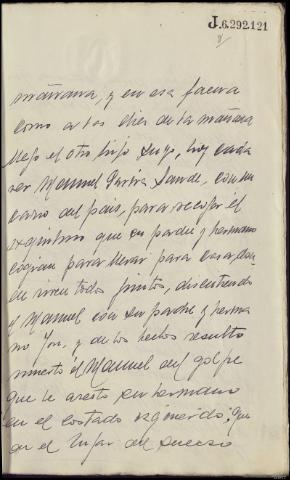 J.6.292.121
mañana, y en esa faena
como a las diez de la mañana
llego el otro hijo suyo, hoy cada
ver Manuel Sande, con un
carro del pais, para recoger el
que su padre y hermano
cogian para llevar para casa, don
de viven todos juntos, discutiendo
el Manuel con su padre y herma
no José, y de los hechos resultó
muerto el Manuel del golpe
que le asestó su hermano
en el costado izquierdo; que
en el lugar del suceso